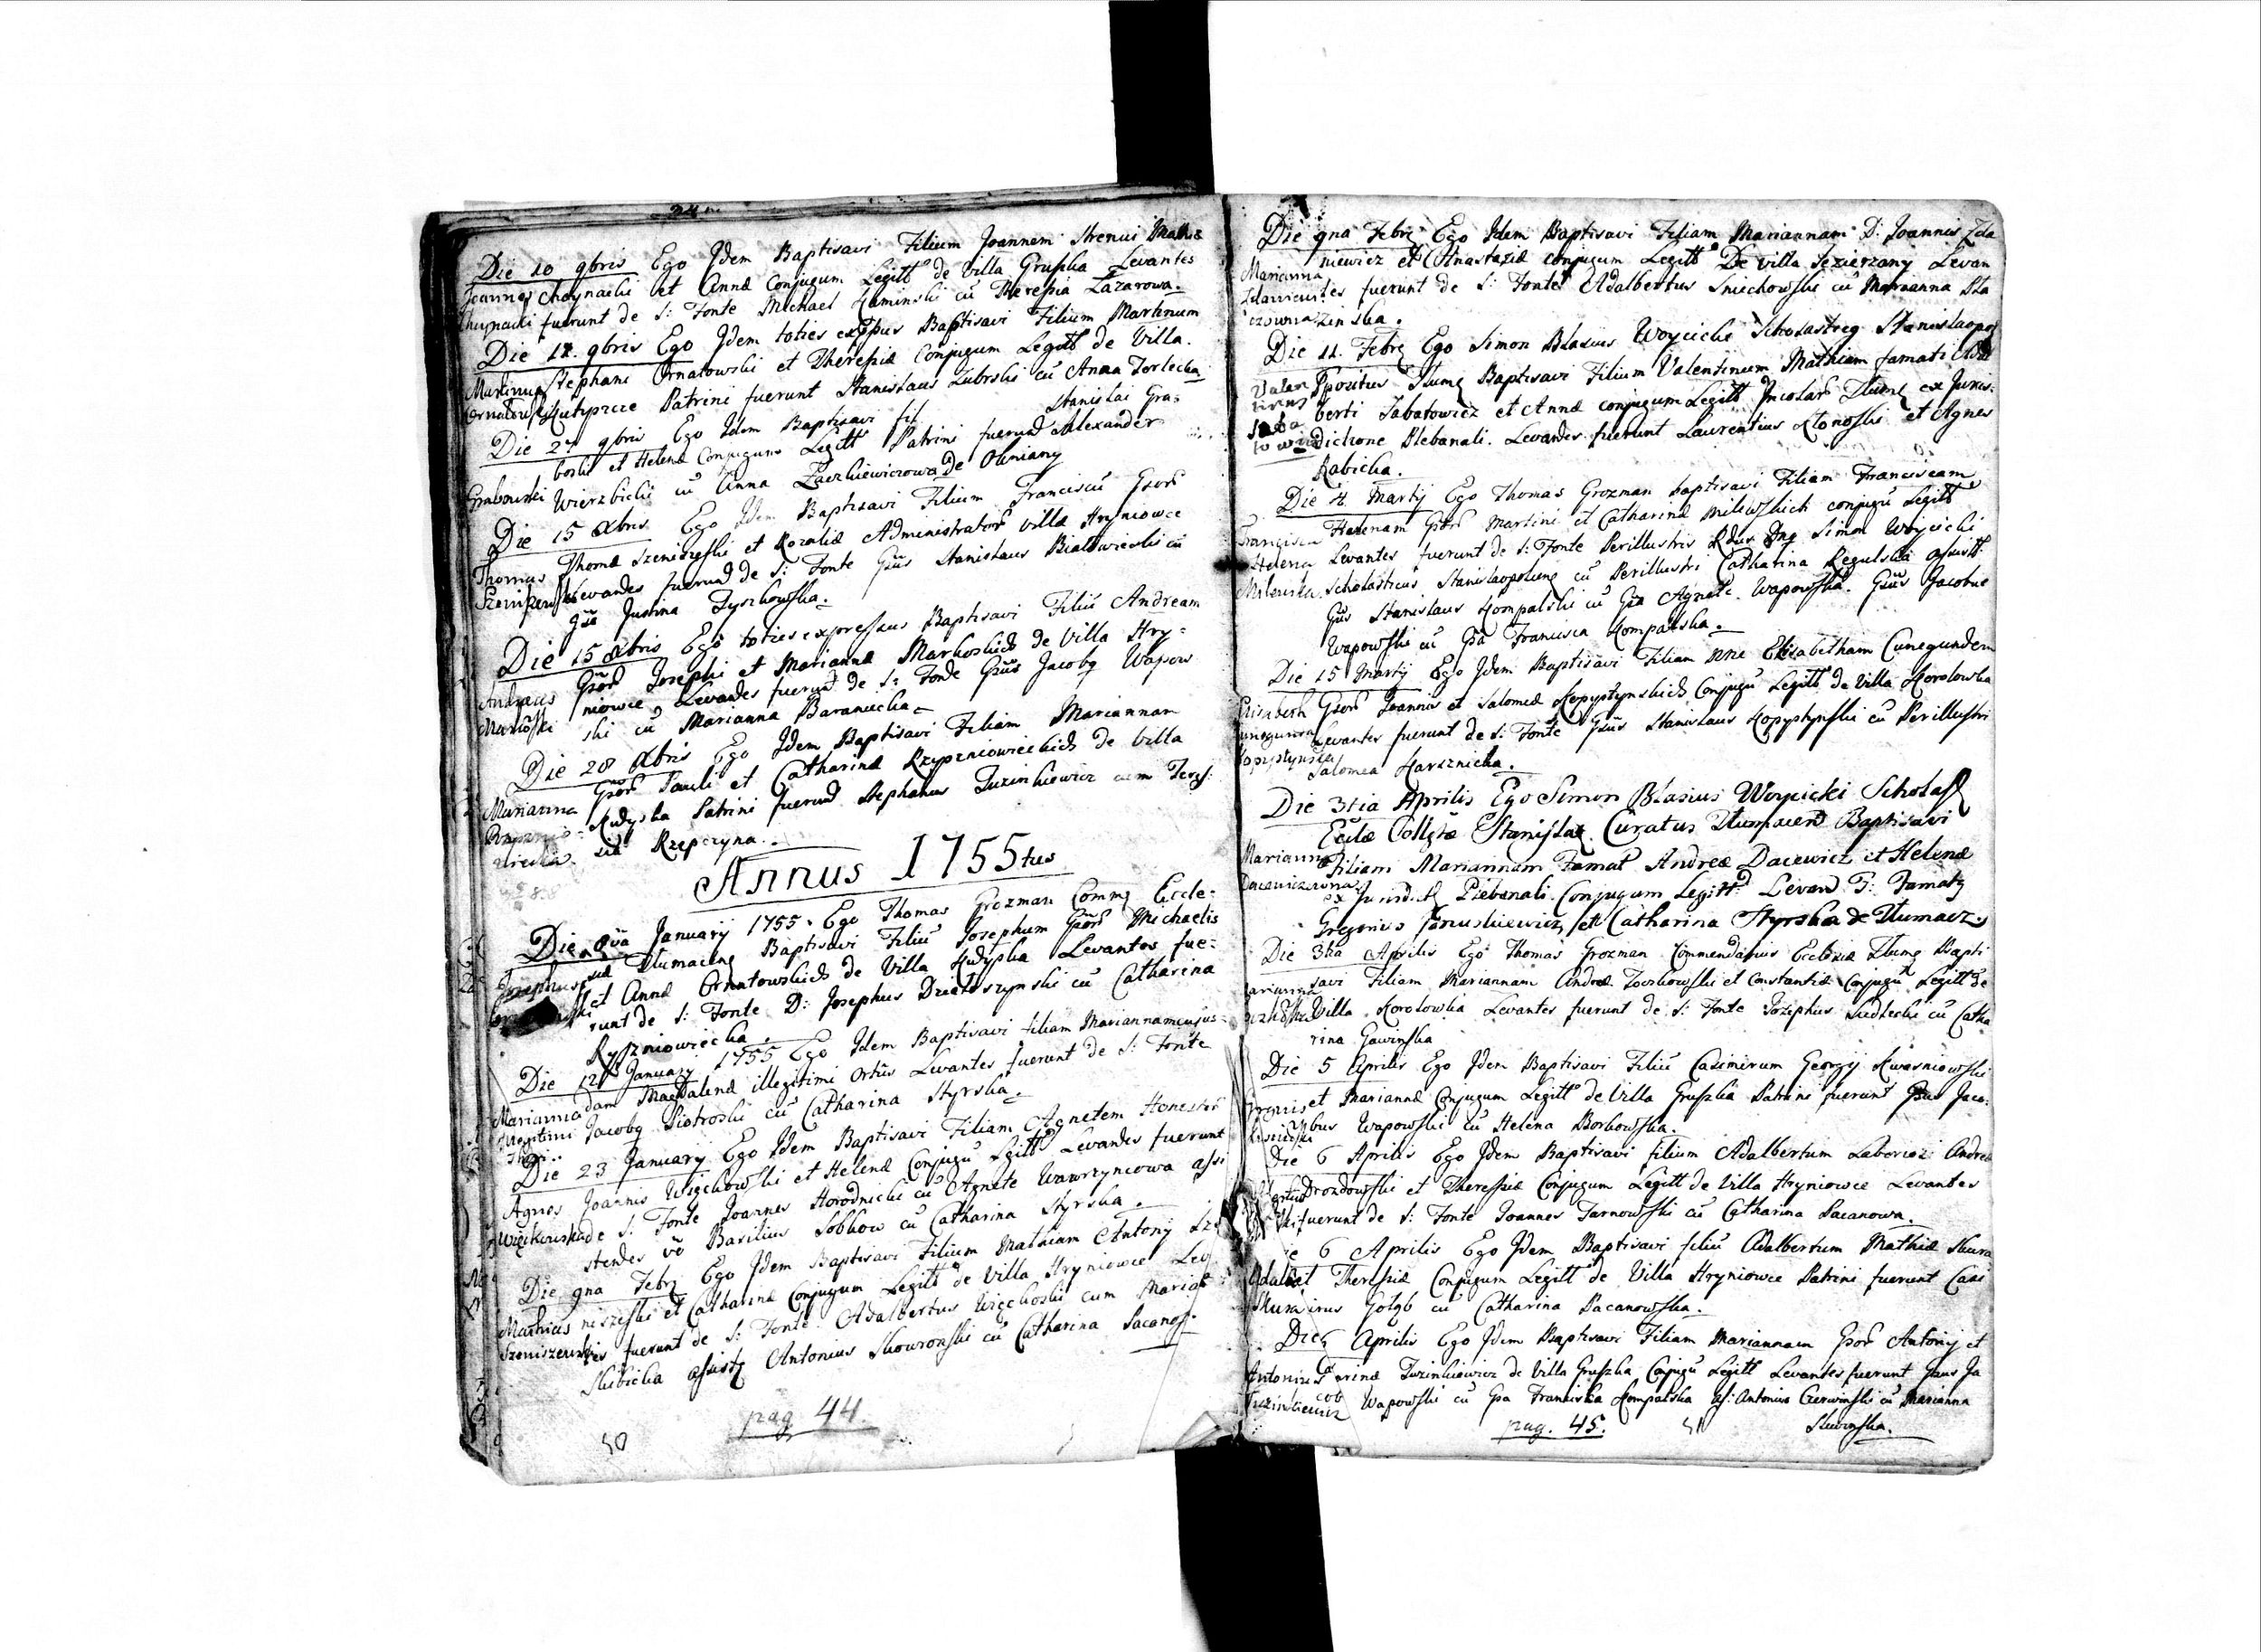 Die 10 9bris Ego Idem Baptisavi Filium Joannem Strenui Mathiæ
Joannes Choynacki et Annæ Conjugum Legitt de Villa Gruszka Levantes
Choynacki fuerunt de S: Fonte Michael Kaminski cũ Theresia Łazarowa.
Die 12. 9bris Ego Idem toties exppus Baptisavi Filium Martinum
Martinus Stephani Ornatowski et Theresiæ Conjugum Legitt de Villa.
Ornatowski Patrini fuerunt Stanislaus Zubrski cũ Anna Torlecka
Die 27 9bris Ego Idem Baptisavi fil: Stanislai Gra=
boski et Helenæ Conjugum Legitt Patrini fuerunt Alexander
Grabowski Wierzbicki cũ Anna Zaczkiewiczowa de Olesiany
Die 15 Xbris Ego Idem Baptisavi Filium Franciscũ Gsor
Thomas Thomæ Szeniszeski et Rozaliæ Administrator villæ Hryniowce
Levantes fuerunt de S: Fonte Gsus Stanislaus Białowieski cũ
Gsa Justina Zyszkowska.
Die 15 Xbris Ego toties expressus Baptisavi Filiũ Andream
Andreas Gsor Josephi et Mariannæ Markoskich de Villa Hry=
Markoski niowce, Levantes fuerunt de S: Fonte Gsus Jacobg Wapow
ski cũ Marianna Baraniecka
Die 28 Xbris Ego Idem Baptisavi Filiam Mariannam
Marianna Gsor Pauli et Catharinæ Rzyszniowieckich de Villa
Kudyska Patrini fuerunt Stephanus Tuzinkiewicz cum Teres:
Rzepczyna.
Annus 1755tus
Die January 1755. Ego Thomas Grozman Comm Eccle=
siæ Tłumacieng Baptisavi Filiũ Josephum Gsor Michaelis
Josephus et Annæ Ornatowskich de Villa Kudyska Levantes fue=
runt de S: Fonte D: Josephus Działoszynski cũ Catharina
Ryszniowiecka.
Die 12 January 1755 Ego Idem Baptisavi filiam Mariannam cujus=
Marianna dam Magdalenæ illegitimi Ortũs Levantes fuerunt de S: Fonte
Jacobg Piotroski cũ Catharina Styrska.
Die 23 January Ego Idem Baptisavi Filiam Agnetem Honestor
Agnes Joannis Więckowski et Helenæ Conjugũ Lgitt Levantes fuerunt
Więckowska de S: Fonte Joannes Horodnicki cũ Agnete Wawrzyncowa assi
stentes vo Basilius Sobkow cũ Catharina Styrska.
Die 9na Febr Ego Idem Baptisavi Filium Mathiam Antony Sze
Mathias niszeski et Catharinæ Conjugum Legitt de Villa Hryniowce Lev
Szeniszewski fuerunt de S: Fonte Adalbertus Więckoski cum Maria
Skibicka assistg Antonius Skowronski cũ Catharina Pacanos.
pag 44.
50
Die 9na Febr Ego Idem Baptisavi Filiam Mariannam D: Joannis Zda
niewicz et Anastaziæ conjugum Legitt De villa Jezierzany Levan
Marianna
tes fuerunt de S: Fonte Adalbertus Sniechowski cũ Marianna Sta
zinska.
Die 11. Febr Ego Simon Blasius Woycicki Scholastrg Stanislaopol
Præpositus Tlumg Baptisavi Filium Valentinum Mathiam famati Adal
berti Sabatowicz et Annæ conjugum Legitt Incolar Tlumg ex Juris.
dictione Plebanali. Levantes fuerunt Laurentius Klonoski et Agnes
Rabicka.
Die 4 Martij Ego Thomas Grozman baptisavi Filiam Franciscam
Francisca Helenam Gsor Martini et Catharinæ Milewskich conjugũ Legitt
Helena Levantes fuerunt de S: Fonte Perillustris Rdus Dng Simon Woycicki
Milewska Scholasticus Stanislaopolieng cũ Perillustri Catharina Regulska assistt
Gsus Stanislaus Kompalski cũ Gsa Agnete Wapowska. Gsus Jacobus
Wapowski cũ Gsa Francisca Kompalska.
Die 15 Martij Ego Idem Baptisavi Filiam nne Elisabetham Cunegundem
Elisabeth Gsor Joannis et Salomeæ Kopystynskich Conjugũ Legitt de Villa Korolowka
Levantes fuerunt de S: Fonte Gsus Stanislaus Kopystynski cũ Perillustri
Kopystynska Salomea Karsznicka.
Die 3tia Aprilis Ego Simon Blasius Woycicki Scholast
Ecclæ Collgtæ Stanislag. Curatus Tlumacien Baptisavi
Marianna Filiam Mariannam Famat Andreæ Dacewicz et Helenæ
Dacewiczowna ex Jurisd. Plebanali Conjugum Legitt. Levan F: Famatg
Gregorius Januskiewicz et Catharina Styrska de Tlumacz
Die 3tia Aprilis Ego Thomas Grozman Commendarius Ecclesiæ Tlumg Bapti
savi Filiam Mariannam Andreæ Torskowski et Constantiæ Conjugũ Legitt de
Villa Korolowka Levantes fuerunt de S: Fonte Josephus Siedlecki cũ Catha
rina Gawinska
Die 5 Aprilis Ego Idem Baptisavi Filiũ Casimirum Georgij Kwasniowski
et Mariannæ Conjugum Legitt de Villa Gruszka Patrini fuerunt Gsus Jaco
bus Wapowski cũ Helena Borkowska.
Die 6 Aprilis Ego Idem Baptisavi filium Adalbertum Laborios: Andreæ
Drozdowski et Theressiæ Conjugum Legitt de Villa Hryniowce Levantes
fuerunt de S: Fonte Joannes Tarnowski cũ Catharina Pacanowa.
6 Aprilis Ego Idem Baptisavi filiũ Adalbertum Mathiæ Skura
et Theressiæ Conjugum Legitt de Villa Hryniowce Patrini fuerunt Casi
Skura mirus Gołąb cũ Catharina Pacanowska.
Die 6 Aprilis Ego Idem Baptisavi Filiam Mariannam Gsor Antonij et
Antonius rinæ Tuzinkiewicz de Villa Gruszka Conjugũ Legitt Levantes fuerunt Gsus Ja
Tuzinkiewicz cob Wapowski cũ Gsa Franciska Kompalska As: Antonius Czerwinski cũ Marianna
pag. 45. 51 Sliwinska.